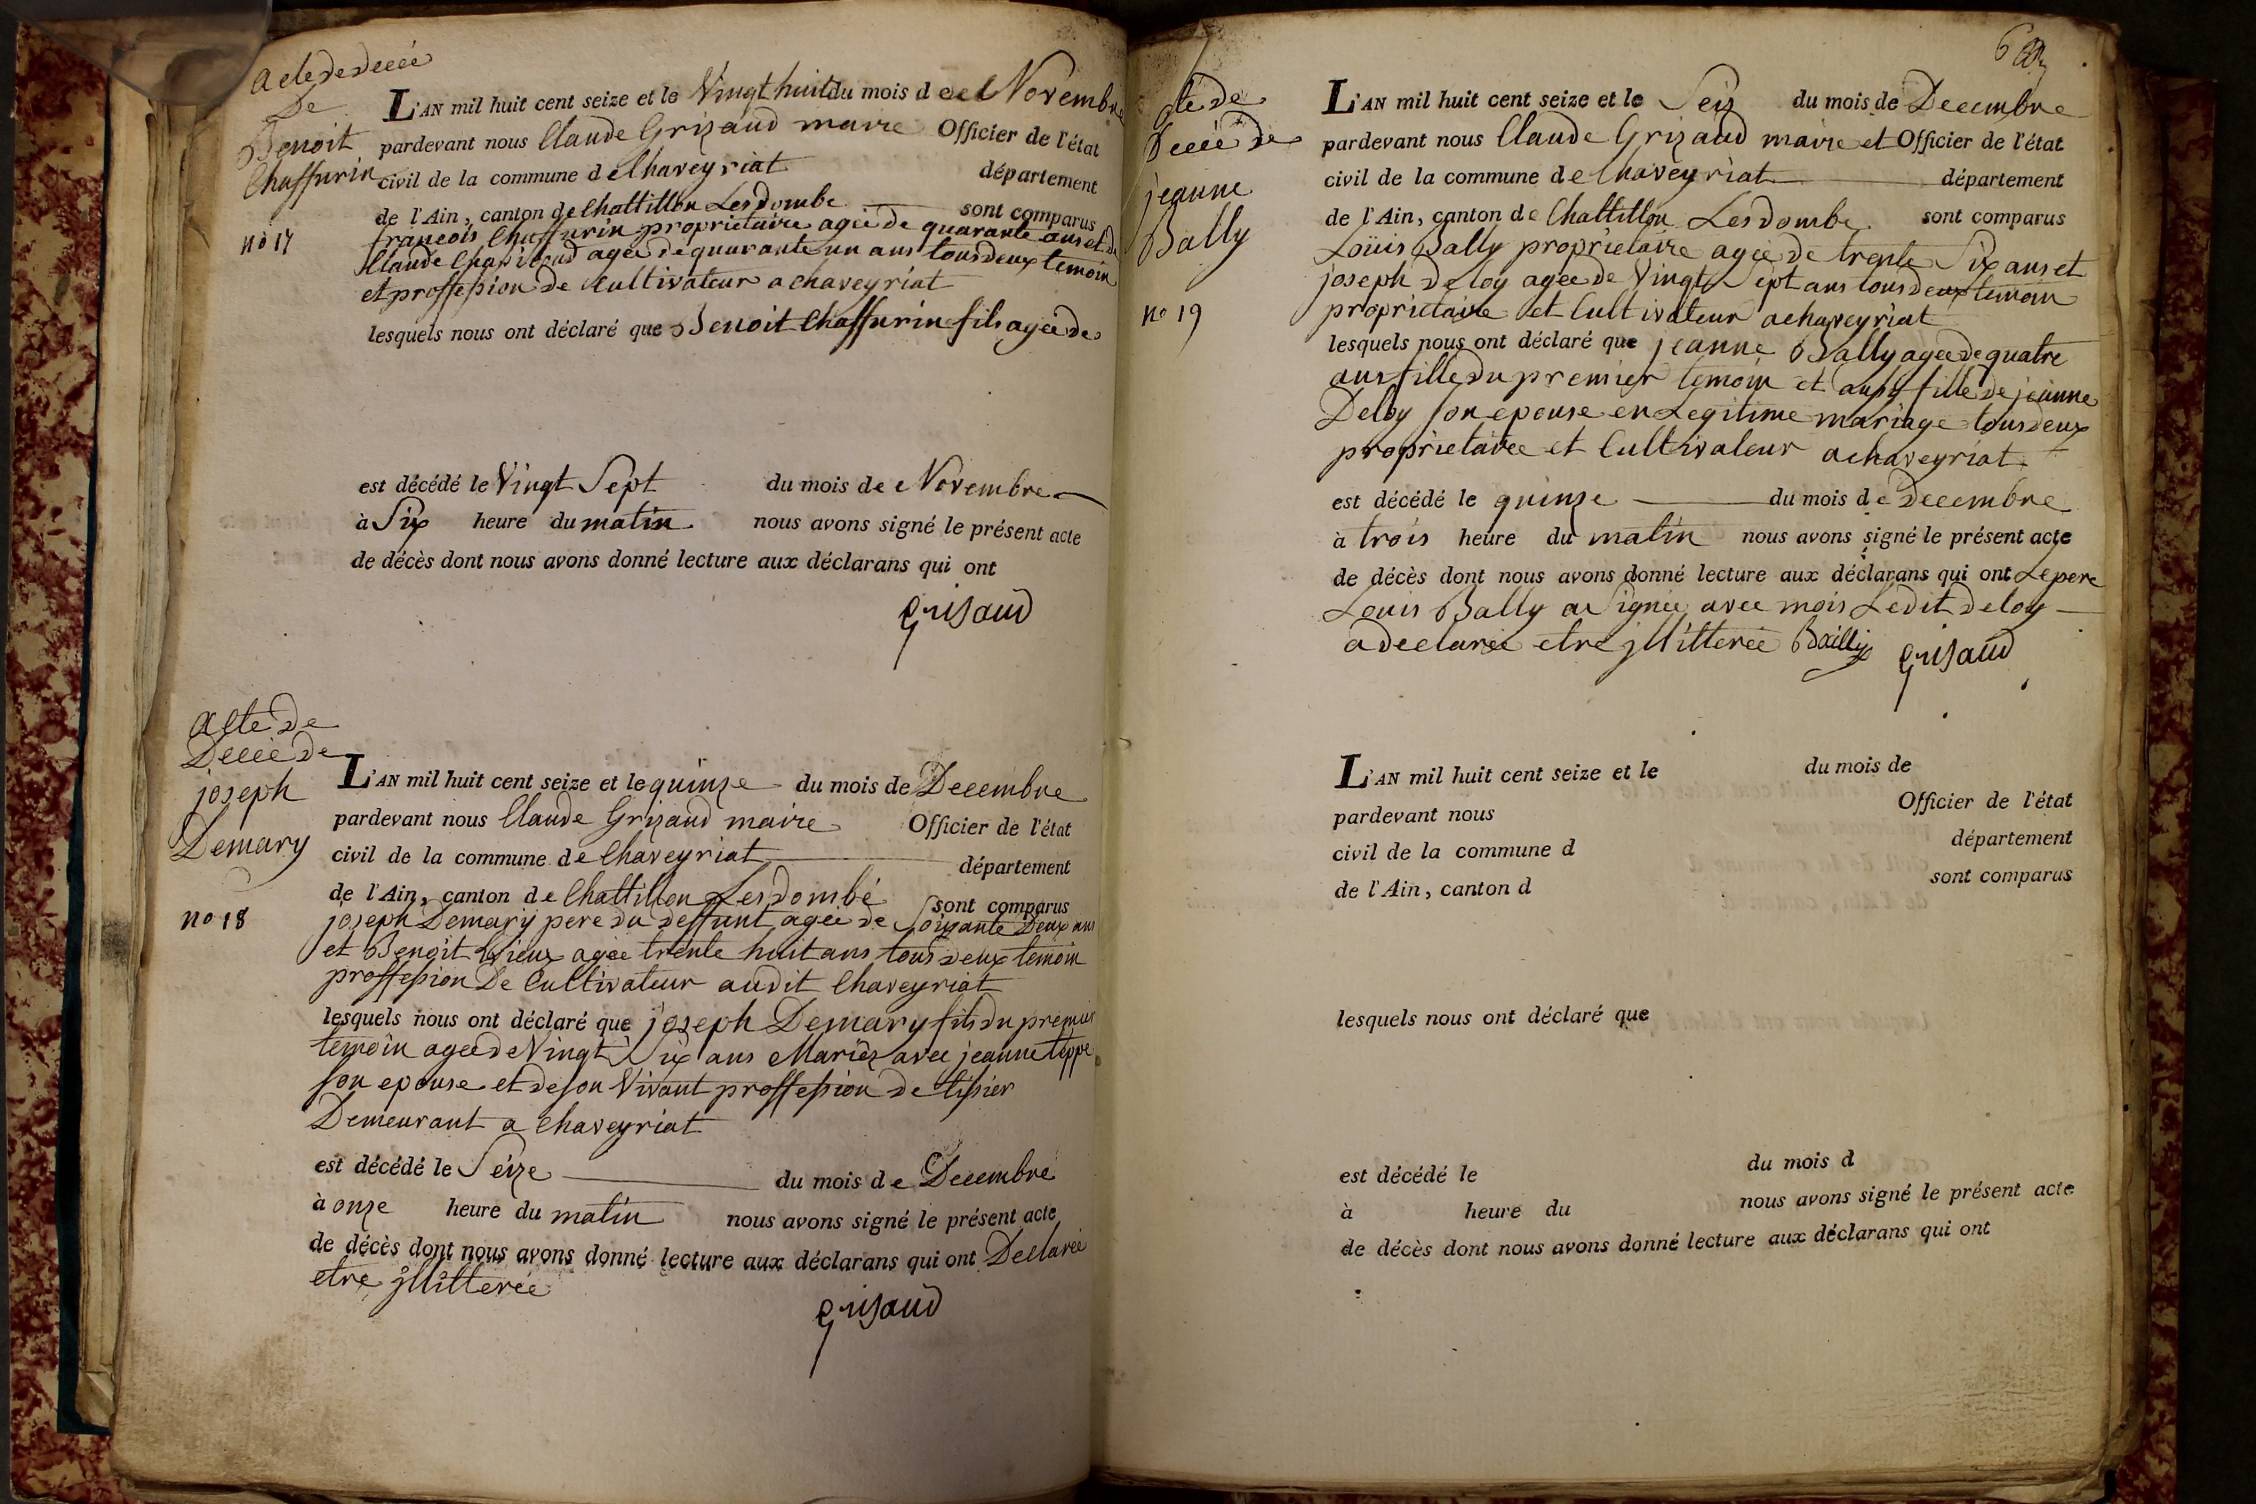 acte de deceé
De
Benoit
Chaffurin
no 17
L'AN mil huit cent seize et le Vingt huit du mois de Novembre
pardevant nous Claude Grizaud maire Officier de l'état
civil de la commune de Chaveyriat département
de l'Ain, canton de Chattillon Les dombe sont comparus
francois Chaffurin proprietaire ageé de quarante ans et de
Claude ageé de quarante un ans tous deux temoin
et proffession de Cultivateur a chaveyriat
lesquels nous ont déclaré que Benoit Chaffurin fils ageé de
est décédé le Vingt Sept du mois de Novembre
à Six heure du matin nous avons signé le présent acte
de décès dont nous avons donné lecture aux déclarans qui ont
Grisaud
acte de
Deceé de
joseph
Demary
no 18
L'AN mil huit cent seize et le quinze du mois de Decembre
pardevant nous Claude Grizaud maire Officier de l'état
civil de la commune de Chaveyriat département
de l'Ain, canton de Chattillon Les dombé sont comparus
joseph Demary pere du deffunt ageé de Soizante Deux ans
et Benoit Vieux ageé trente huit ans tous deux temoin
proffession De Cultivateur audit Chaveyriat
lesquels nous ont déclaré que joseph Demary fils du premier
temoin ageé de Vingt Six ans Mariéz avec jeanne teppe
son epouse et de son Vivant proffession de tissier
Demeurant a Chaveyriat
est décédé le Seize du mois de Decembre
à onze heure du matin nous avons signé le présent acte
de décès dont nous avons donné lecture aux déclarans qui ont Declareé
etre jllittereé
Grisaud
6
cte de
Deceé de
jeanne
Bally
no 19
L'AN mil huit cent seize et le Seiz du mois de Decembre
pardevant nous Claude Grizaud maire et Officier de l'état
civil de la commune de Chaveyriat département
de l'Ain, canton de Chattillon Les dombe sont comparus
Loüis Bally proprietaire ageé de trente Six ans et
joseph Deloy ageé de Vingt Sept ans tous deux temoin
proprietaire et Cultivateur a chaveyriat
lesquels nous ont déclaré que jeanne Bally ageé de quatre
ans fille du premier temoin et aussy fille de jeanne
Deloy son epouse en Legitime mariage tous deux
proprietaire et Cultivateur a chaveyriat
est décédé le quinze du mois de Decembre
à trois heure du matin nous avons signé le présent acte
de décès dont nous avons donné lecture aux déclarans qui ont Le pere
Louis Bally a Signée avec mois Ledit Deloy
a declareé etre jllittereé Bailly Grisaud
L'AN mil huit cent seize et le du mois de
pardevant nous Officier de l'état
civil de la commune d département
de l'Ain, canton d sont comparus
lesquels nous ont déclaré que
est décédé le du mois d
à heure du nous avons signé le présent acte
de décès dont nous avons donné lecture aux déclarans qui ont